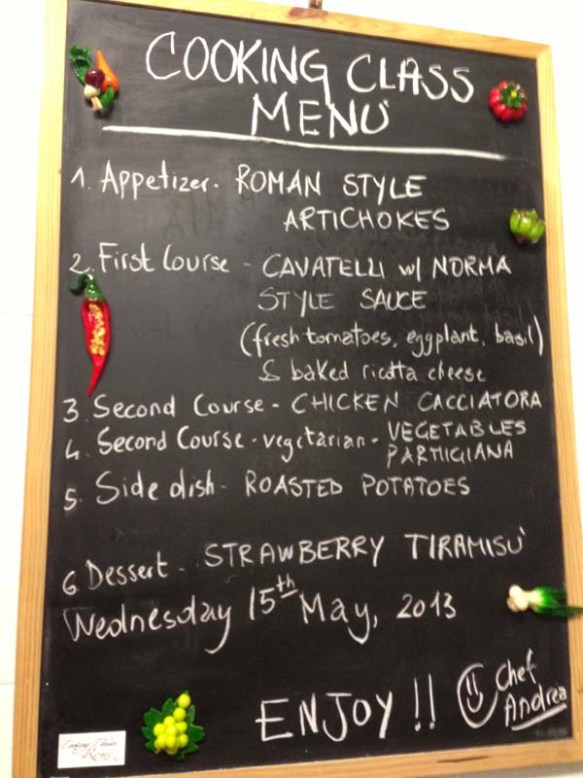 COOKING CLASS
MENÙ
1. Appetizer - ROMAN STYLE
ARTICHOKES
2. First Course - CAVATELLI w/ NORMA
STYLE SAUCE
(fresh tomatoes, eggplant, basil)
& baked ricotta cheese
3. Second Course - CHICKEN CACCIATORA
4. Second Course - vegetarian - VEGETABLES
PARMIGIANA
5. Side dish - ROASTED POTATOES
6. Dessert - STRAWBERRY TIRAMISU'
Wednesday 15th May, 2013
ENJOY !! Chef
Andrea